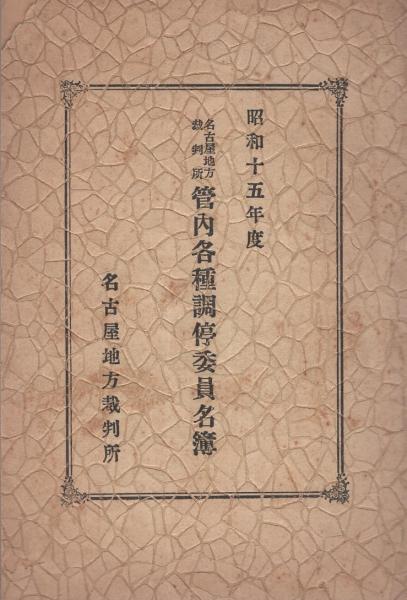 昭和十五年度
名古屋地方
裁判所
管内各種調停委員名簿
名古屋地方裁判所